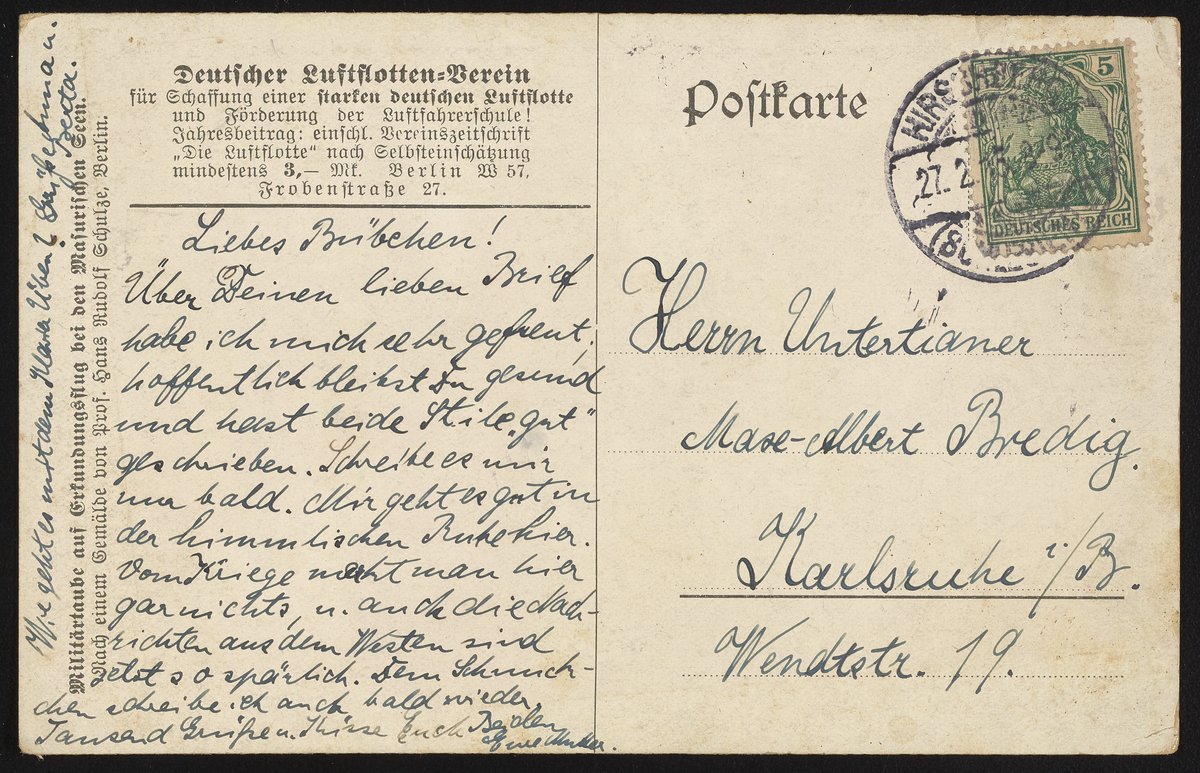 Deutscher Luftflotten=Verein
für Schaffung einer starken deutschen Luftflotte
und Förderung der Luftfahrerschule!
Jahresbeitrag: einschl. Vereinszeitschrift
„Die Luftflotte“ nach Selbsteinschätzung
mindestens 3,— Mk. Berlin W 57,
Frobenstraße 27.
Liebes Bübchen!
Über Deinen lieben Brief
habe ich mich sehr gefreut,
hoffentlich bleibst Du gesund
und hast beide Stile „gut“
geschrieben. Schreibe es mir
nur bald. Mir geht es gut in
der himmlischen Ruhe hier.
Vom Kriege merkt man hier
gar nichts, u. auch die Nach-
richten aus dem Westen sind
jetzt so spärlich. Dem Schnuck-
chen schreibe ich auch bald wieder.
Tausend Grüße u. Küsse Euch Beiden
Eure Mutter.
Wie geht es mit dem Klavier Üben? Grüße
Militärtaube auf Erkundungsflug bei den Masurischen Seen.
Nach einem Gemälde von Prof. Hans Rudolf Schulze, Berlin.
Postkarte
5
DEUTSCHES REICH
HIRSCHBERG
27. 2. 15. 8-9
Herrn Untertianer
Max-Albert Bredig.
Karlsruhe i/B.
Wendtstr. 19.